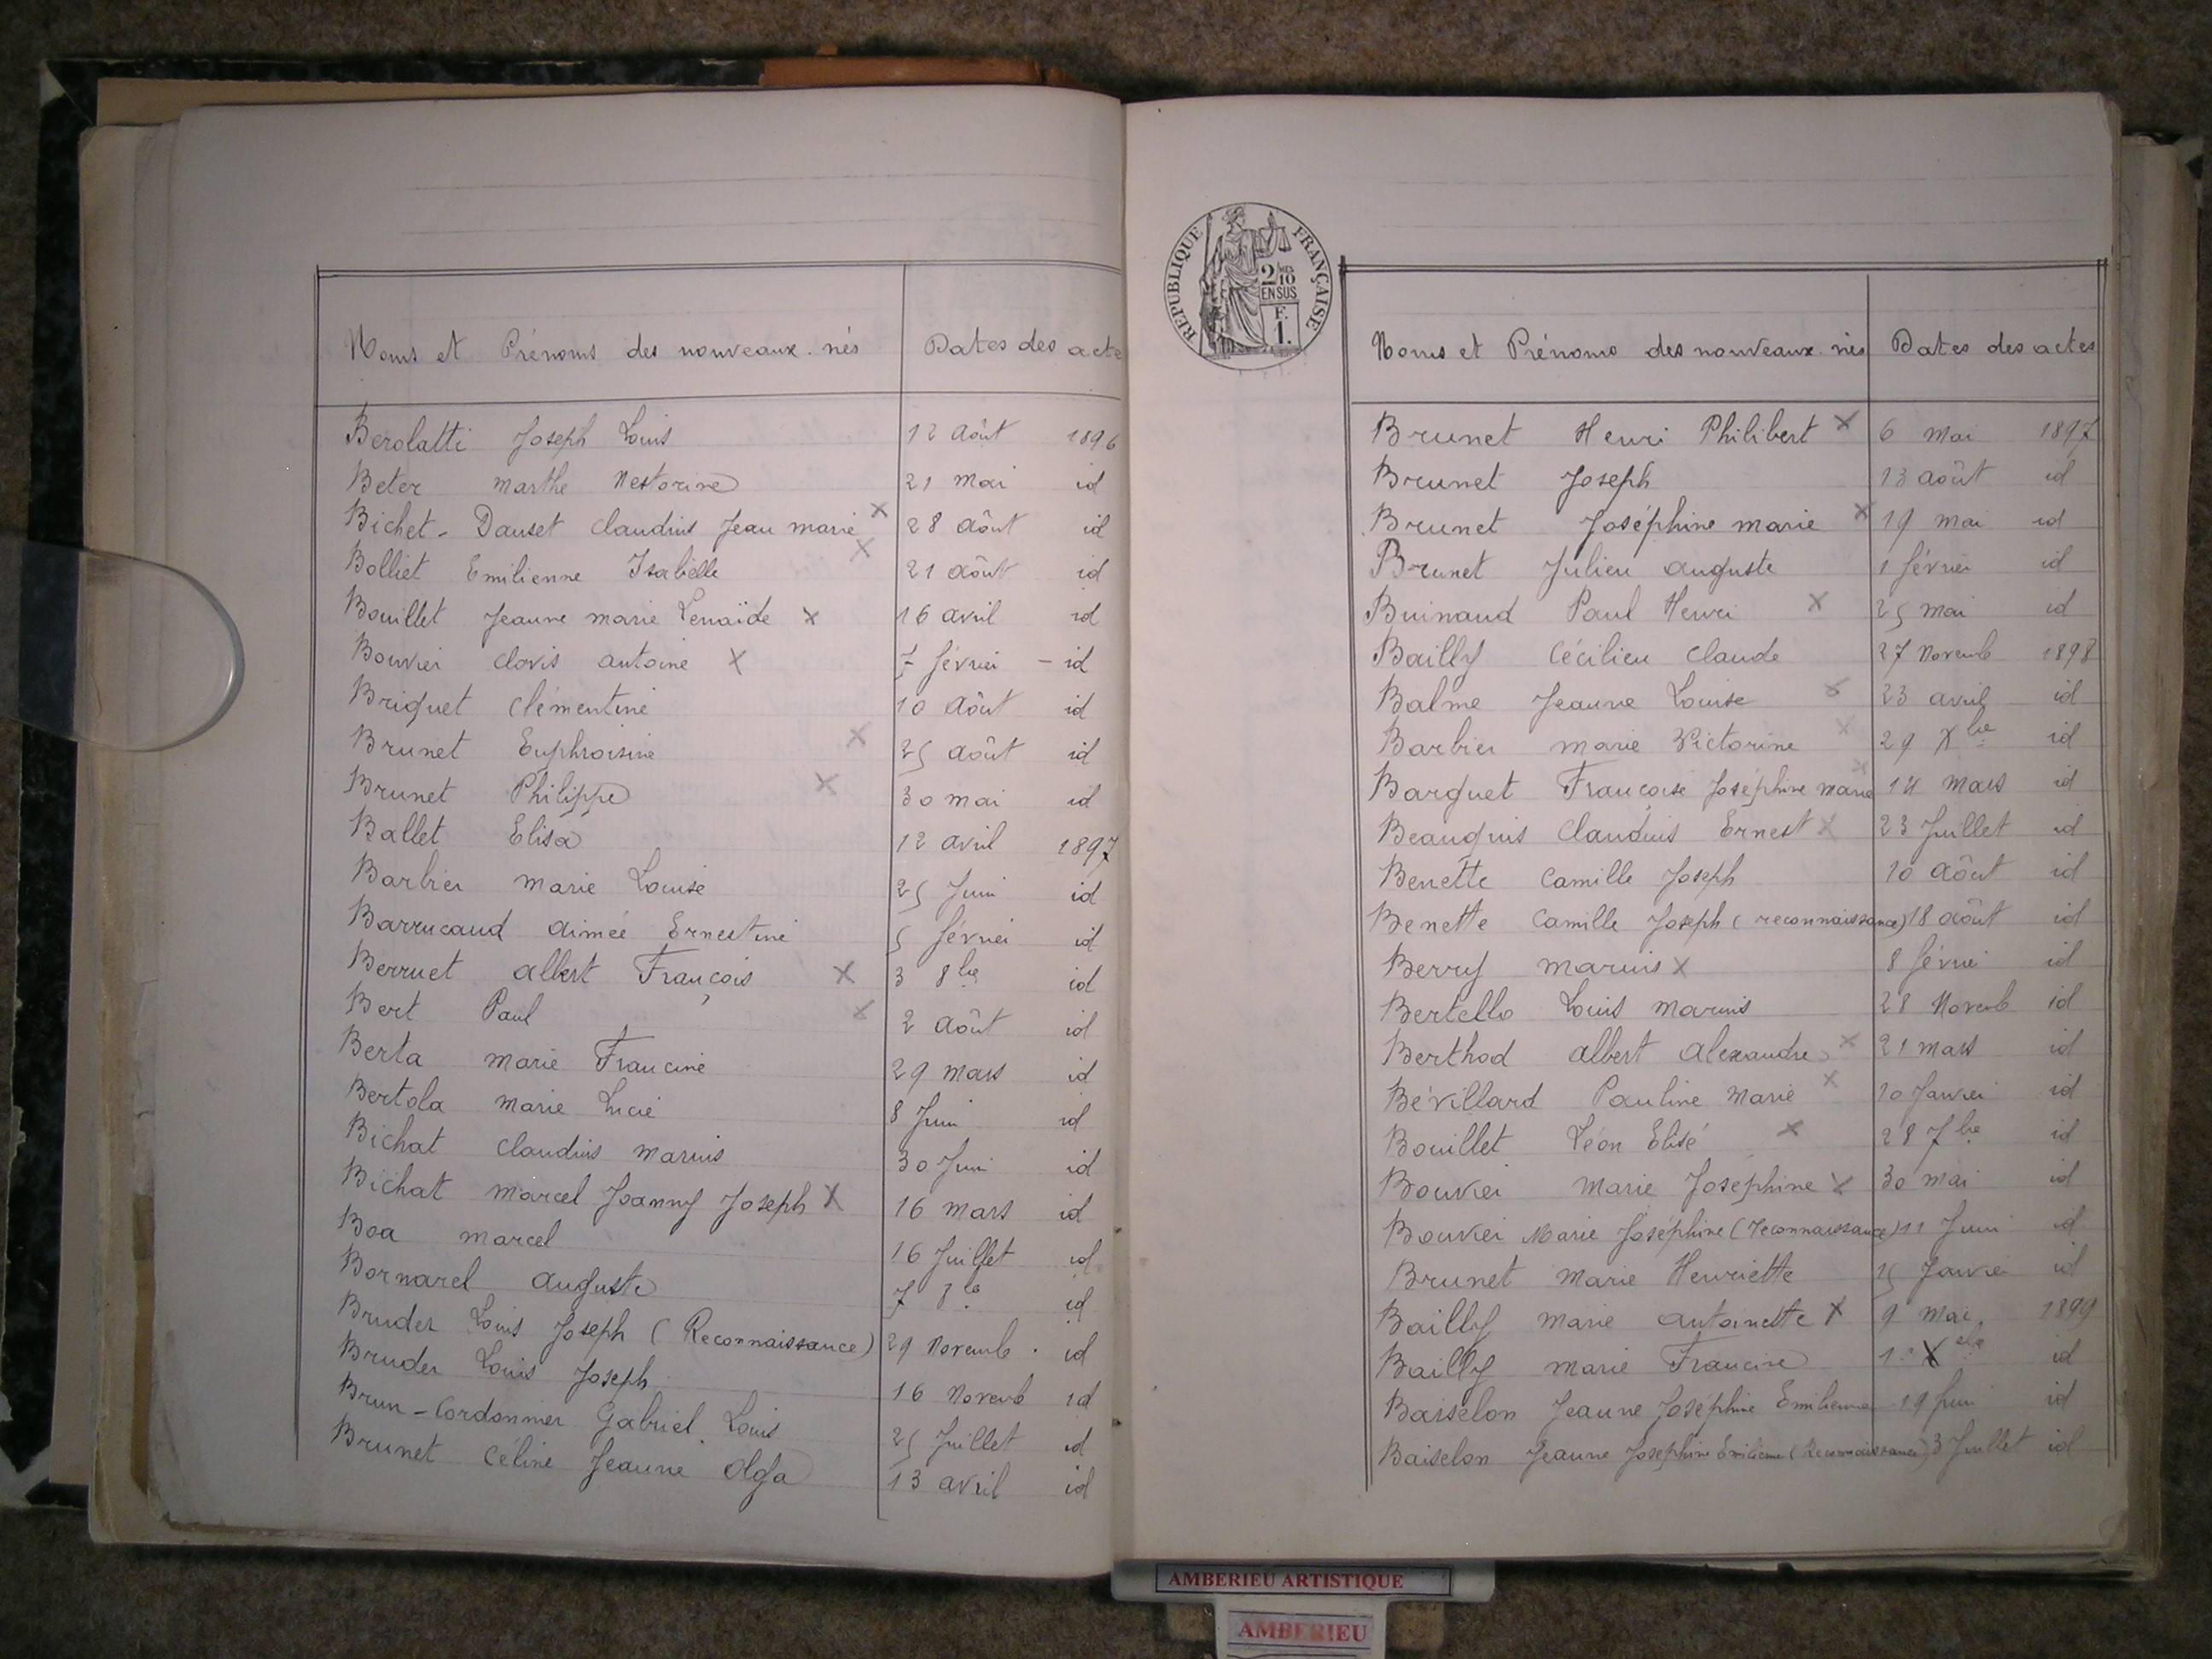 Noms et Prénoms des nouveaux-nés Dates des acte
Berolatti Joseph Louis 12 Août 1896
Beter Marthe Nestorine 21 Mai id
Bichet-Dauset Claudius Jean Marie X 28 Août id
Bolliet Emilienne Isabelle X 21 Août id
Bouillet Jeanne Marie Lenaïde X 16 avril id
Bouvier Clovis Antoine X 7 février - id
Briguet Clémentine 10 Août id
Brunet Euphroisine X 25 Août id
Brunet Philippe X 30 mai id
Ballet Elisa 12 avril 1897
Barbier Marie Louise 25 Juin id
Barrucaud Aimée Ernestine 5 février id
Berruet Albert François X 3 8bre id
Bert Paul X 2 Août id
Berta Marie Francine 29 mars id
Bertola Marie Lucie 8 Juin id
Bichat Claudius Marius 30 Juin id
Bichat Marcel Joanny Joseph X 16 mars id
Boa Marcel 16 Juillet id
Bornarel Auguste 7 8bre id
Bruder Louis Joseph (Reconnaissance) 29 Novemb. id
Bruder Louis Joseph 16 Novemb id
Brun-Cordonnier Gabriel Louis 25 Juillet id
Brunet Céline Jeanne Olga 13 avril id
REPUBLIQUE FRANÇAISE
2/10 MES
EN SUS
F.
1.
Noms et Prénoms des nouveaux-nés Dates des actes
Brunet Henri Philibert X 6 Mai 1897
Brunet Joseph 13 août id
Brunet Joséphine Marie X 19 Mai id
Brunet Julien Auguste 1 février id
Buinaud Paul Henri X 25 Mai id
Bailly Cécilien Claude 27 Novemb 1898
Balme Jeanne Louise X 23 avril id
Barbier Marie Victorine X 29 Xbre id
Barquet Françoise Joséphine Marie X 14 Mars id
Beauquis Claudius Ernest X 23 Juillet id
Benette Camille Joseph 10 Août id
Benette Camille Joseph (reconnaissance) 18 Août id
Berry Marius X 8 février id
Bertello Louis Marius 28 Novemb id
Berthod Albert Alexandre X 21 mars id
Bévillard Pauline Marie X 10 Janvier id
Bouillet Léon Elisé X 28 7bre id
Bouvier Marie Joséphine X 30 mai id
Bouvier Marie Joséphine (reconnaissance) 11 Juin id
Brunet Marie Henriette 15 Janvier id
Bailly Marie Antoinette X 9 Mai 1899
Bailly Marie Francine id
Baiselon Jeanne Joséphine Emilienne 19 Juin id
Baiselon Jeanne Joséphine Emilienne (Reconnaissance) 3 Juillet id
AMBERIEU ARTISTIQUE
AMBERIEU